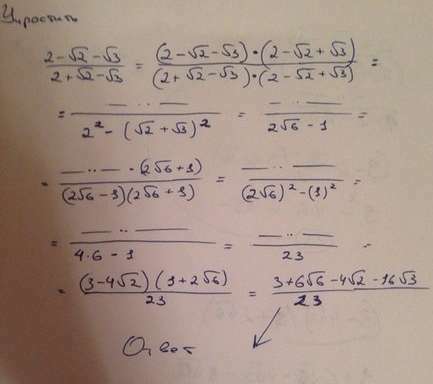 Упростить
(2-√2-√3)/(2+√2-√3) = ((2-√2-√3)•(2-√2+√3))/((2+√2-√3)•(2-√2+√3)) =
= (— ·· —)/(2² - (√2+√3)²) = (— ·· —)/(2√6 - 1) =
= (— ·· — • (2√6+1))/((2√6-1)(2√6+1)) = (— ·· —)/((2√6)² - (1)²) =
= (— ·· —)/(4·6 - 1) = (— ·· —)/23 =
= ((3-4√2)(1+2√6))/23 = (3+6√6-4√2-16√3)/23
Ответ